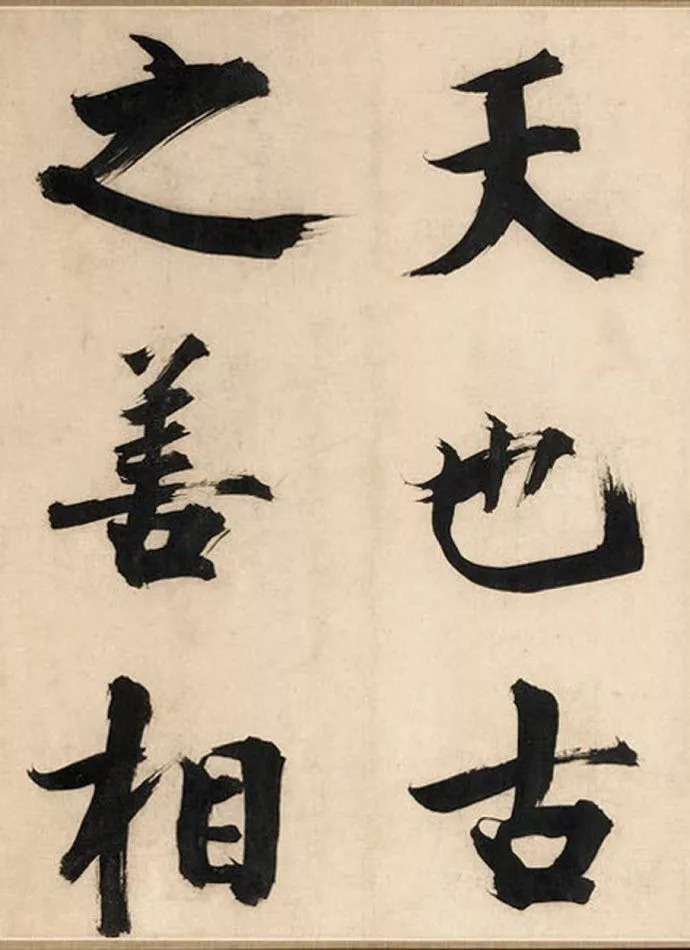 天也古
之善相